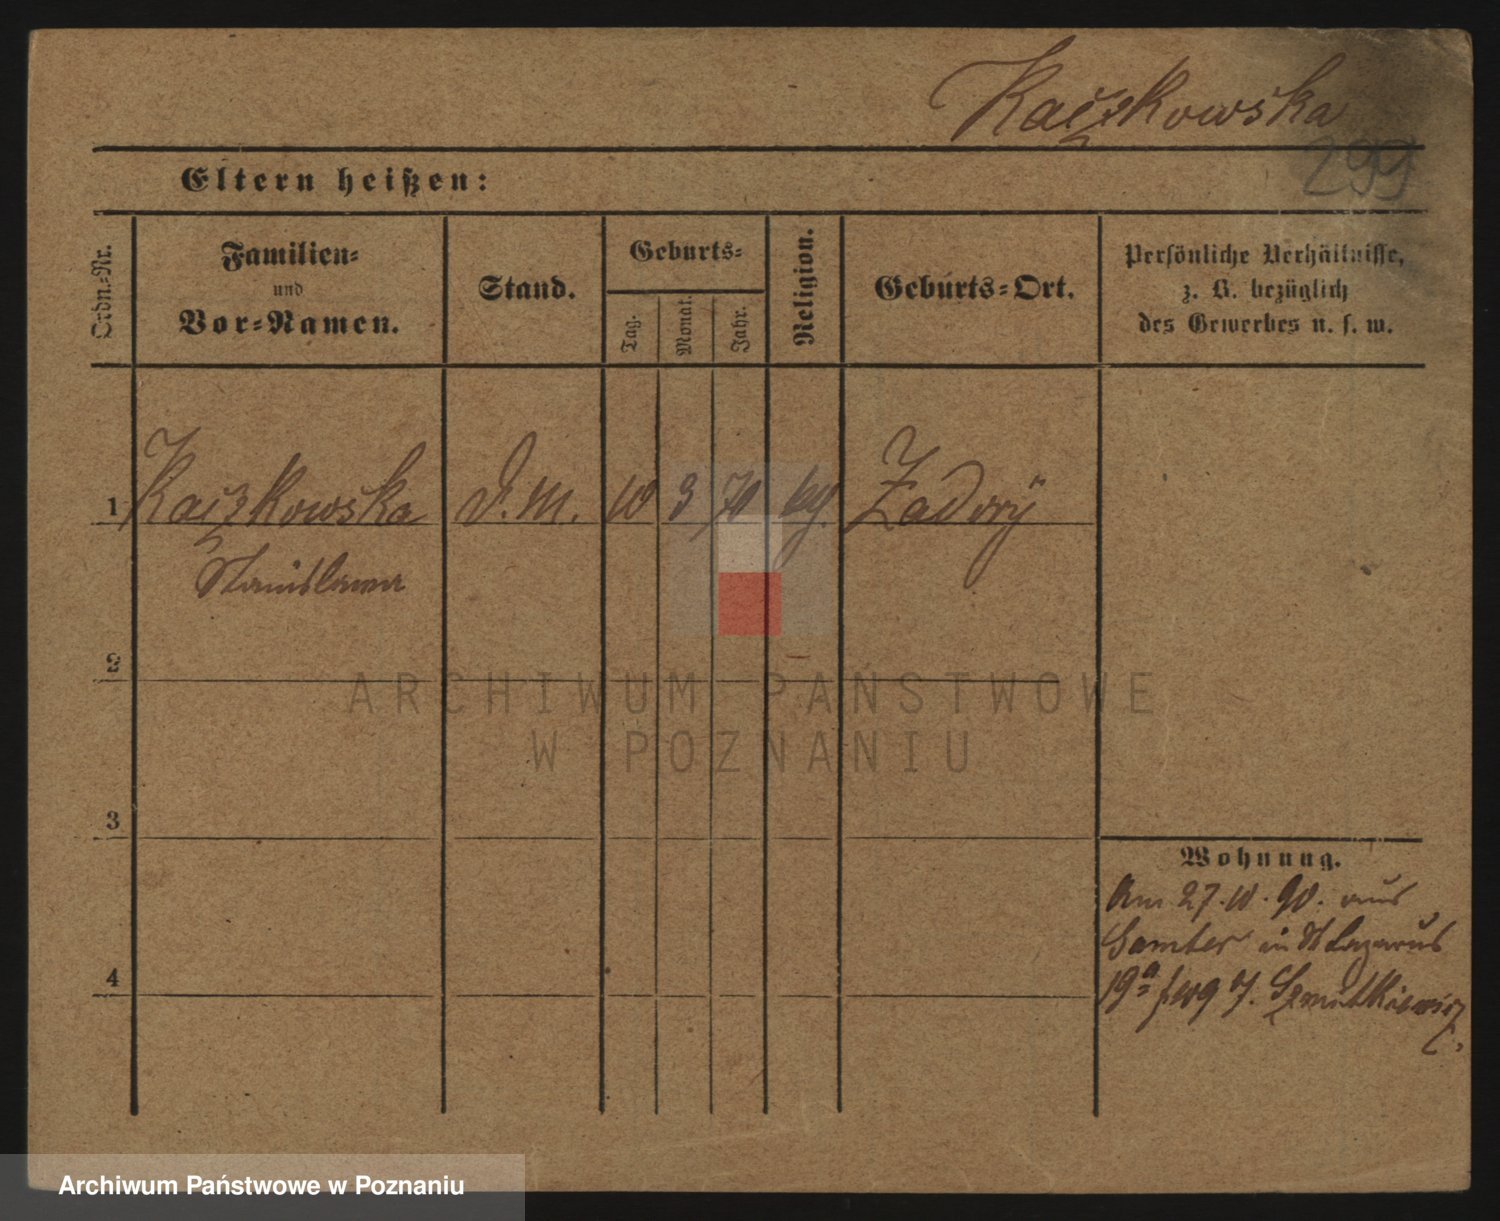 Kaczkowska
299
Eltern heißen:
Ordn.-Nr.
Familien-
und
Vor-Namen.
Stand.
Geburts-
Tag.
Monat.
Jahr.
Religion.
Geburts-Ort.
Persönliche Verhältnisse,
z. B. bezüglich
des Gewerbes u. s. w.
1 Kaczkowska D. M. 10 3 70 Zadory
Stanislawa
2
3
4
Wohnung.
Am 27.10.90. aus
Samter in St Lazarus
19a
ARCHIWUM PAŃSTWOWE
W POZNANIU
Archiwum Państwowe w Poznaniu